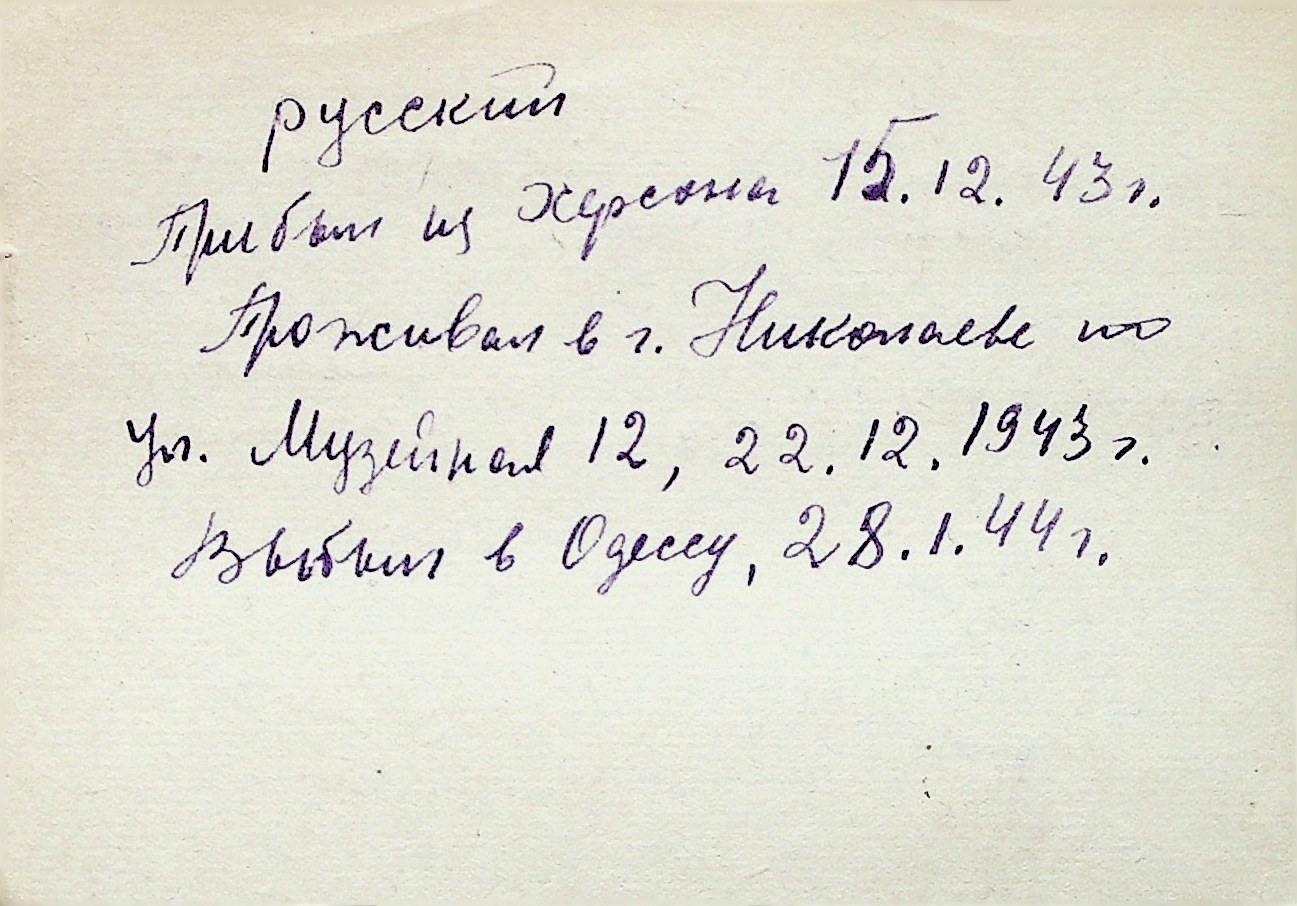 русский
Прибыл из Херсона 15.12.43 г.
Проживал в г. Николаеве по
ул. Музейная 12, 22.12.1943 г.
Выбыл в Одессу, 28.1.44 г.